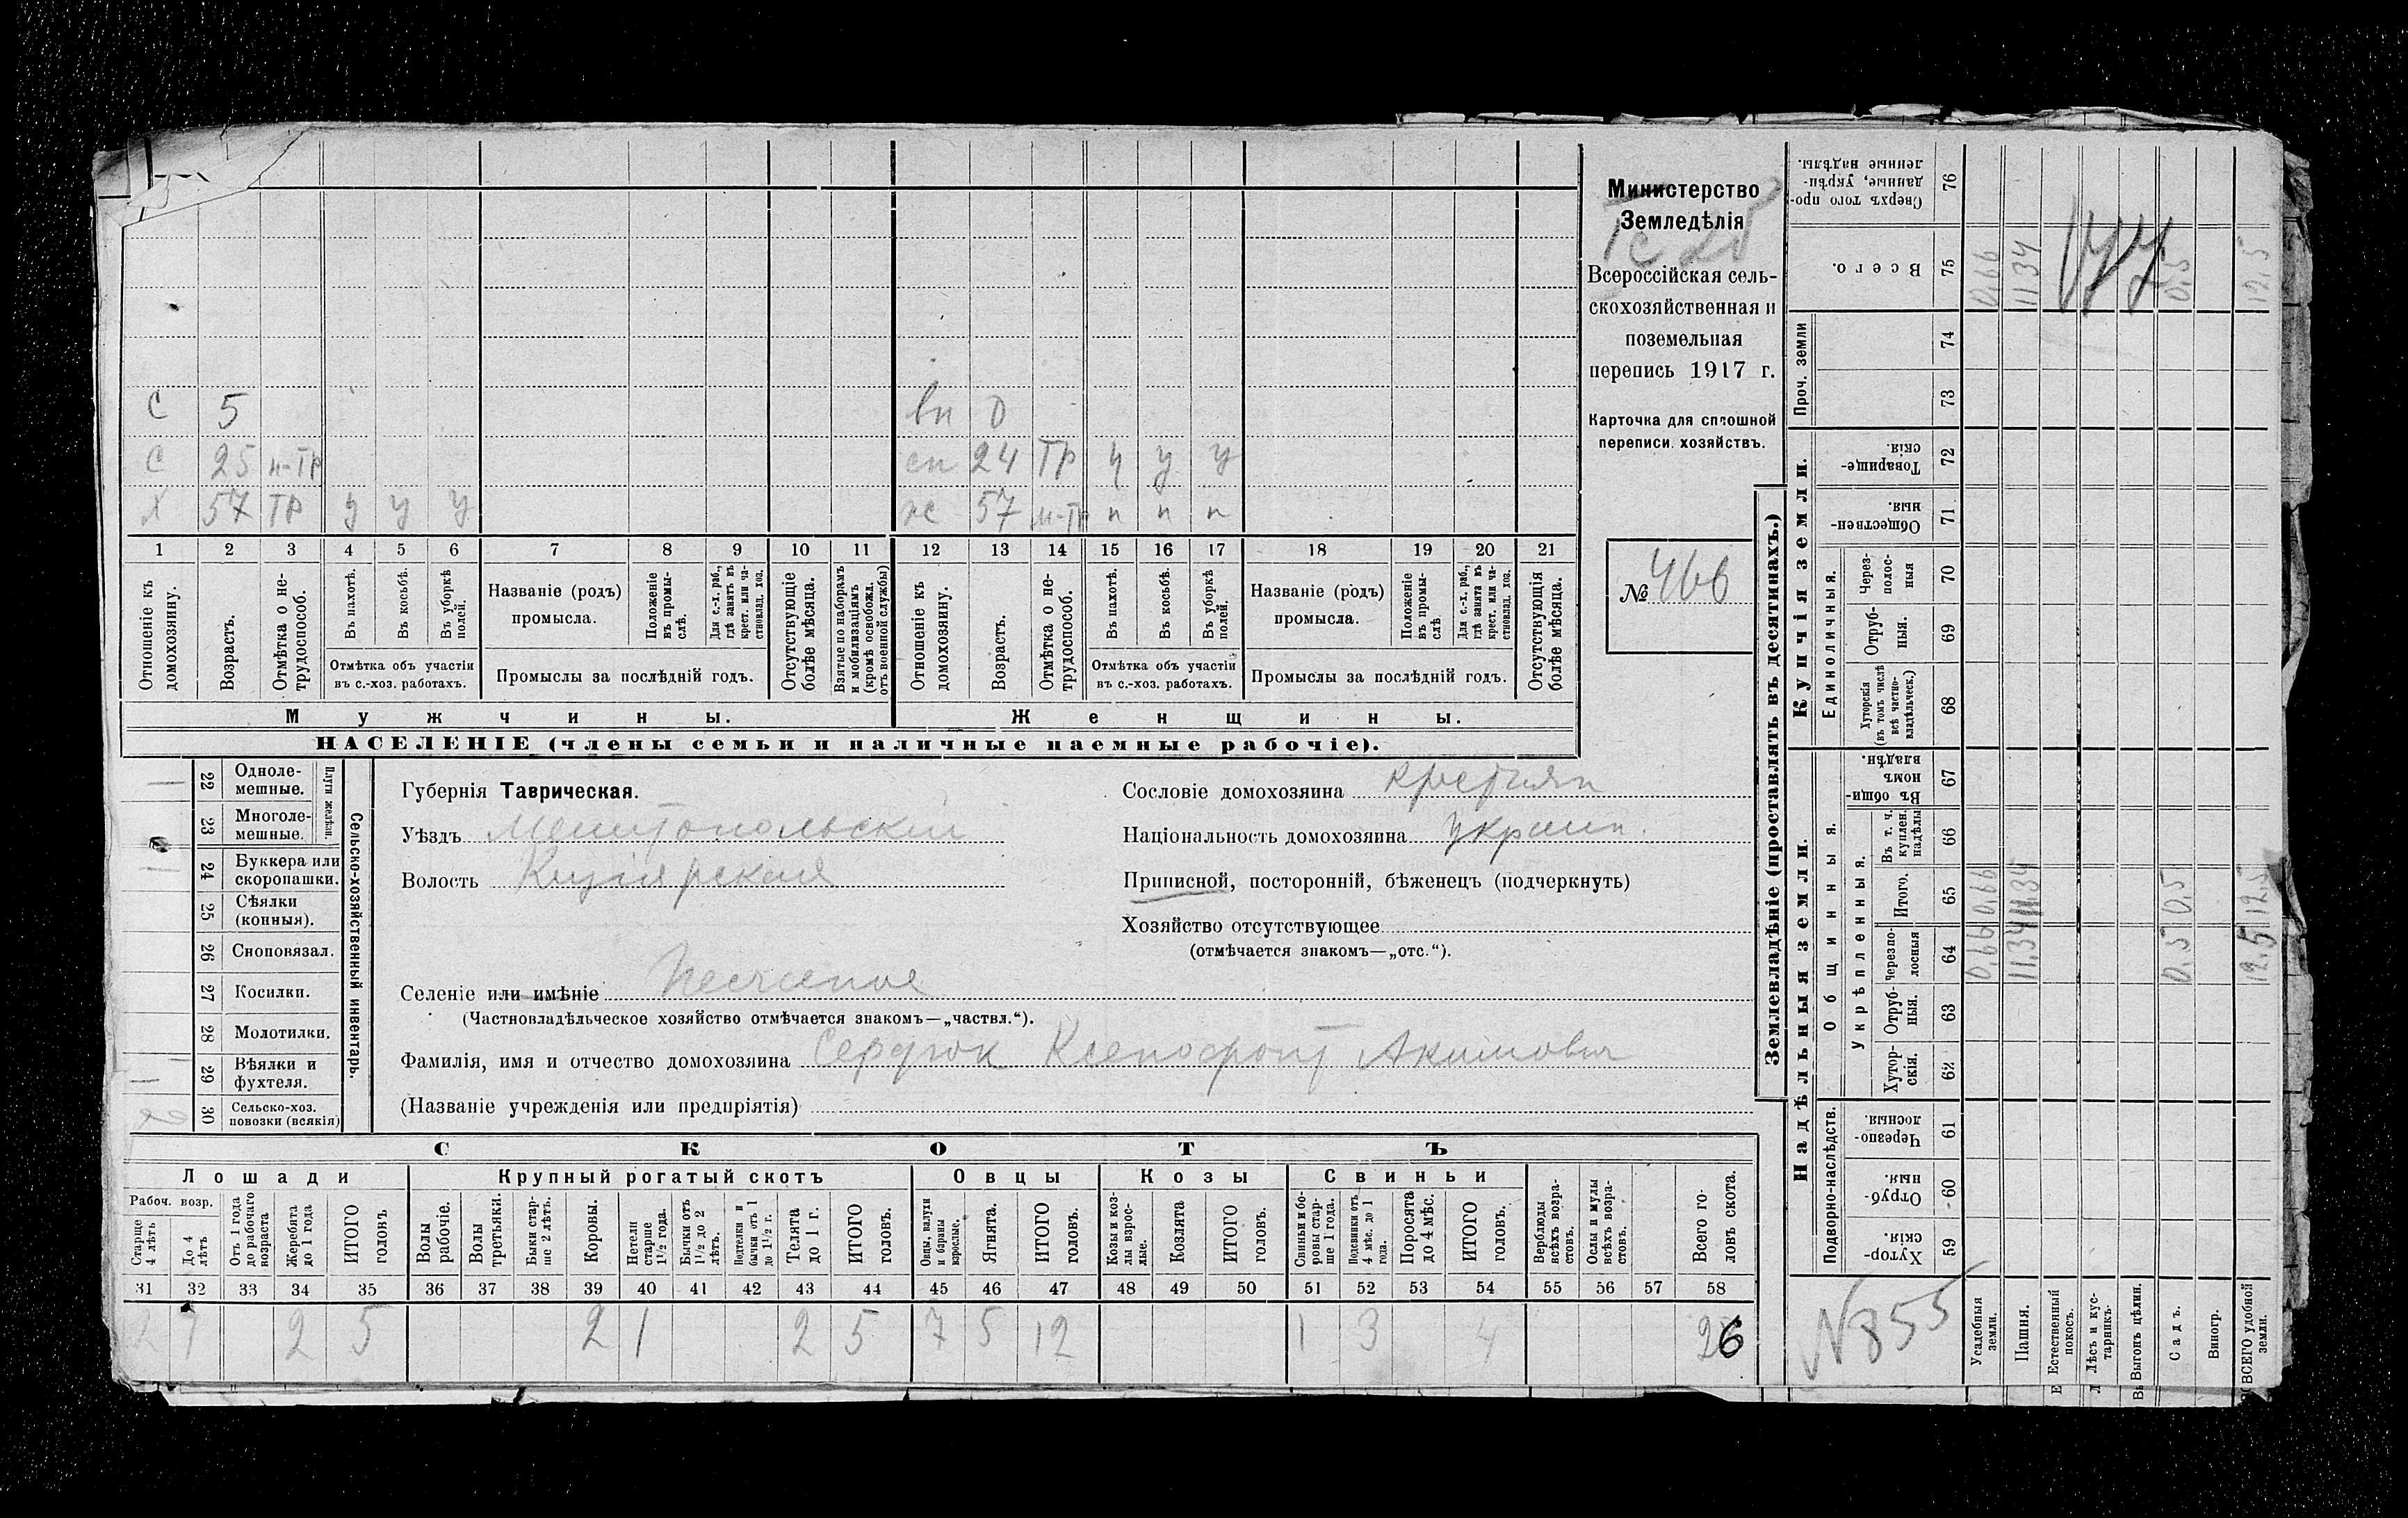 С 5 вп 0
С 25 н-тр сп 24 тр у у у
Х 57 тр у у у ж 57 н-тр п п п
1 2 3 4 5 6 7 8 9 10 11 12 13 14 15 16 17 18 19 20 21
Отношеніе къ домохозяину.
Возрастъ.
Отмѣтка о не-
трудоспособ.
Въ пахотѣ.
Въ косьбѣ.
Въ уборкѣ
полей.
Отмѣтка объ участіи
въ с.-хоз. работахъ.
Названіе (родъ)
промысла.
Положеніе
въ промы-
слѣ.
Для с.-х. раб.,
гдѣ занятъ въ
крест. или ча-
стновлад. хоз.
Промыслы за послѣдній годъ.
Отсутствующіе
болѣе мѣсяца.
Взятые по наборамъ
и мобилизаціямъ
(кромѣ освобожд.
отъ военной службы)
Отношеніе къ
домохозяину.
Возрастъ.
Отмѣтка о не-
трудоспособ.
Въ пахотѣ.
Въ косьбѣ.
Въ уборкѣ
полей.
Отмѣтка объ участіи
въ с.-хоз. работахъ.
Названіе (родъ)
промысла.
Положеніе
въ промы-
слѣ
Для с.-х. раб.,
гдѣ занята въ
крест. или ча-
стновлад. хоз.
Промыслы за послѣдній годъ.
Отсутствующія
болѣе мѣсяца.
Мужчины.
Женщины.
НАСЕЛЕНІЕ (члены семьи и наличные наемные рабочіе).
Министерство
Земледѣлія
Всероссійская сель-
скохозяйственная и
поземельная
перепись 1917 г.
Карточка для сплошной
переписи хозяйствъ.
№ 466
22 Одноле-
мешные.
23 Многоле-
мешные.
Плуги желѣзн.
24 Буккера или
скоропашки.
25 Сѣялки
(конныя).
26 Сноповязал.
27 Косилки.
28 Молотилки.
29 Вѣялки и
фухтеля.
30 Сельско-хоз.
повозки (всякія)
Сельско-хозяйственный инвентарь.
Губернія Таврическая.
Уѣздъ Мелитопольскій
Волость Кизіярская
Селеніе или имѣніе Песчаное
(Частновладѣльческое хозяйство отмѣчается знакомъ—„частвл.“).
Фамилія, имя и отчество домохозяина Сердюк Ксенофонт Акимович
(Названіе учрежденія или предпріятія)
Сословіе домохозяина крестьян
Національность домохозяина украин.
Приписной, посторонній, бѣженецъ (подчеркнуть)
Хозяйство отсутствующее
(отмѣчается знакомъ—„отс.“).
СКОТЪ
Лошади
Крупный рогатый скотъ
Овцы
Козы
Свиньи
Рабоч. возр.
Старше
4 лѣтъ
До 4
лѣтъ
Отъ 1 года
до рабочаго
возраста
Жеребята
до 1 года
ИТОГО
головъ
Волы
рабочіе.
Волы
третьяки.
Быки стар-
ше 2 лѣтъ.
Коровы.
Нетели
старше
1½ года.
Бычки отъ
1½ до 2
лѣтъ.
Подтелки и
бычки отъ 1
до 1½ г.
Телята
до 1 г.
ИТОГО
головъ.
Овцы, валухи
и бараны
взрослые.
Ягнята.
ИТОГО
головъ.
Козы и коз-
лы взрос-
лые.
Козлята
ИТОГО
головъ.
Свиньи и бо-
ровы стар-
ше 1 года.
Подсвинки отъ
4 мѣс. до 1
года.
Поросята
до 4 мѣс.
ИТОГО
головъ.
Верблюды
всѣхъ возра-
стовъ.
Ослы и мулы
всѣхъ возра-
стовъ.
Всего го-
ловъ скота.
31 32 33 34 35 36 37 38 39 40 41 42 43 44 45 46 47 48 49 50 51 52 53 54 55 56 57 58
2 1 2 5 2 1 2 5 7 5 12 1 3 4 26
Землевладѣніе (проставлять въ десятинахъ.)
Сверхъ того про-
данные, укрѣп-
ленные надѣлы.
76
Всего.
75 0,66 11 34 0,5 12,5
Проч. земли
74
73
Купчія земли.
Товарище-
скія
72
Обществен-
ныя.
71
Единоличныя.
Через-
полос-
ныя
70
Отруб-
ныя.
69
Хуторскія
(въ томъ числѣ
всѣ частно-
владѣльческ.)
68
Надѣльныя земли.
Общинныя.
Въ общи-
номъ
владѣн.
67
Укрѣпленныя.
Въ т. ч.
куплен.
надѣлы
66
Итого.
65 0,66 11.34 0,5 12,5
Черезпо-
лосныя
64 0,66 11.34 0,5 12,5
Отруб-
ныя.
63
Хутор-
скія.
62
Подворно-наслѣдств.
Черезпо-
лосныя
61
Отруб-
ныя.
60
Хутор-
скія.
59
N 855
Усадебныя
земли.
Пашня.
Естественный
покосъ.
Лѣсъ и кус-
тарникъ.
Выгонъ цѣлин.
Садъ.
Виногр.
ВСЕГО удобной
земли.